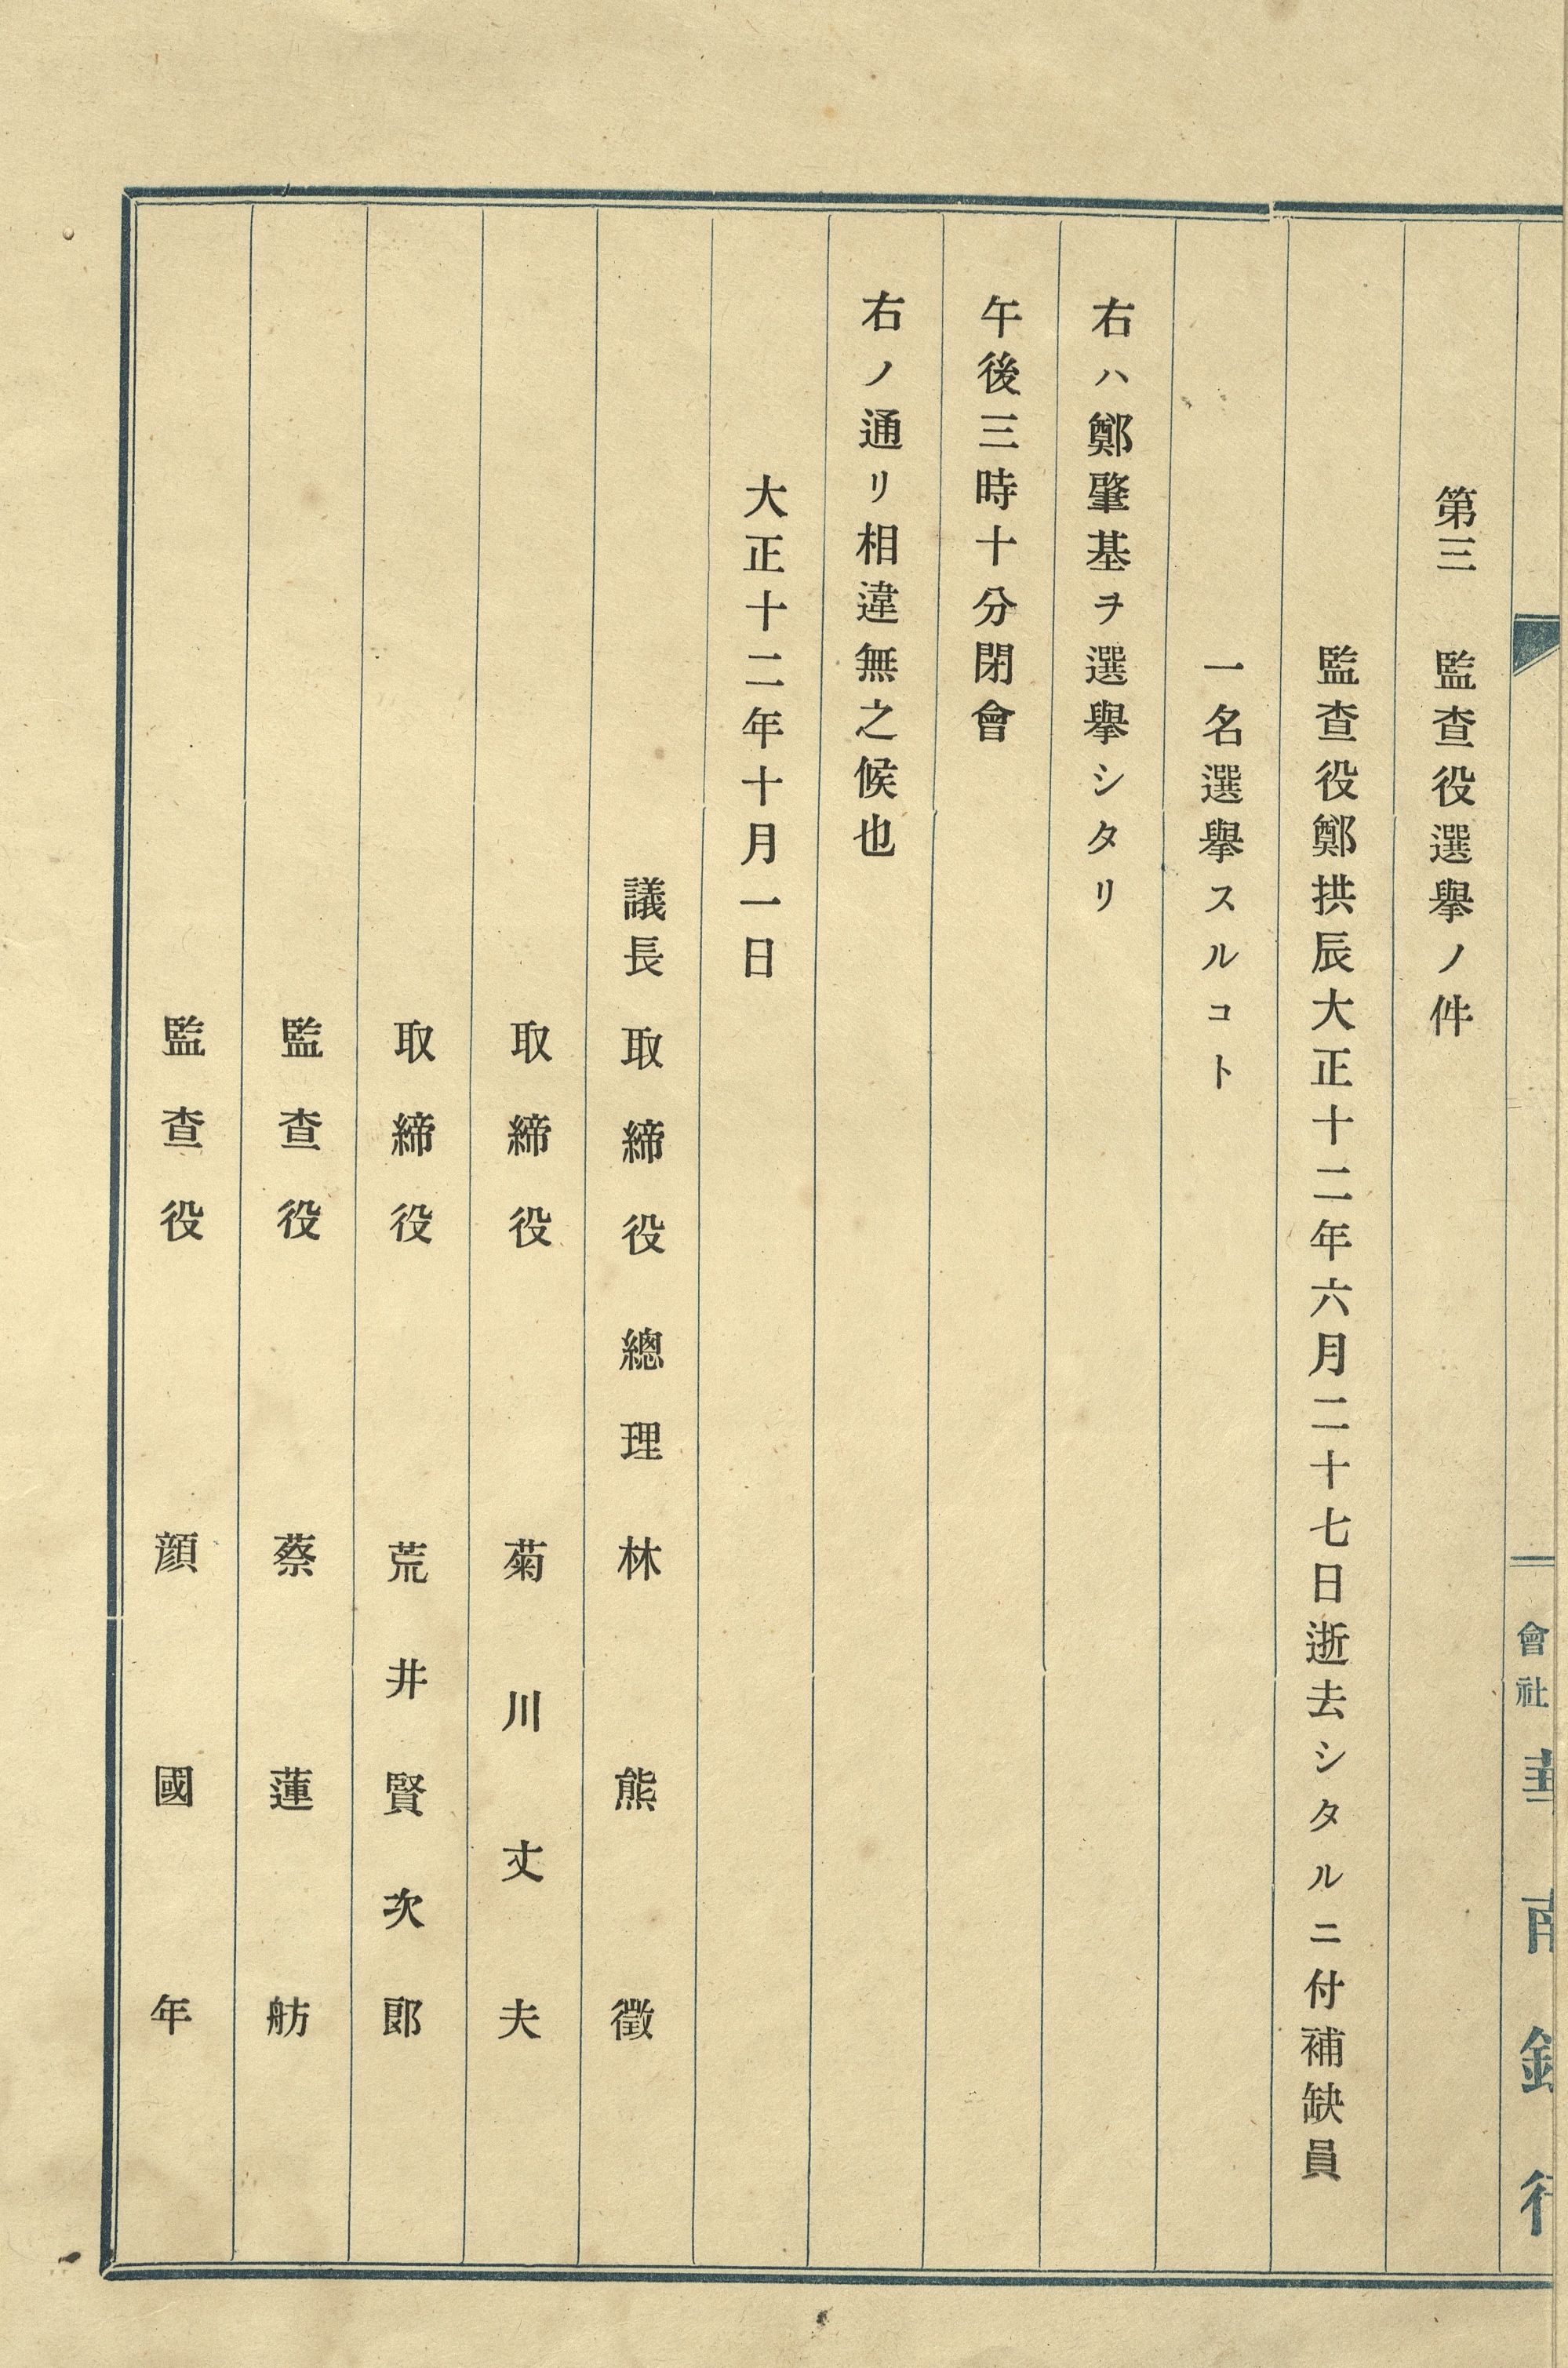 會社 華南銀行
第三 監査役選擧ノ件
監査役鄭拱辰大正十二年六月二十七日逝去シタルニ付補缺員
一名選擧スルコト
右ハ鄭肇基ヲ選擧シタリ
午後三時十分閉會
右ノ通リ相違無之候也
大正十二年十月一日
議長 取締役 總理 林熊徵
取締役 菊川丈夫
取締役 荒井賢次郎
監査役 蔡蓮舫
監査役 顔國年